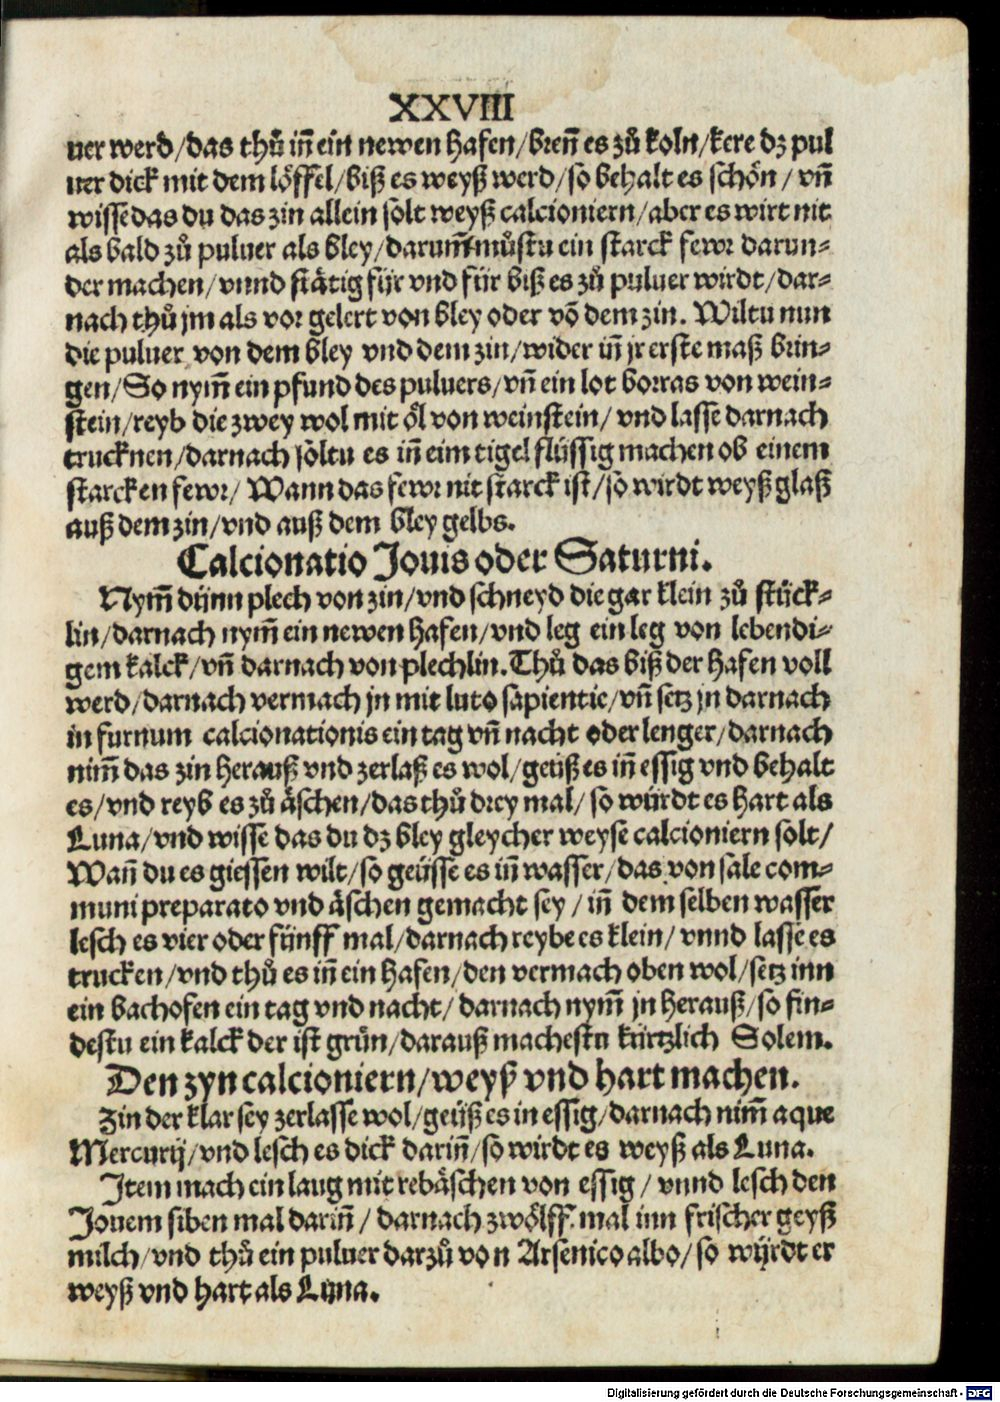 XXVIII
uer werd/das thuͦ iñ ein newen hafen/breñ es zuͦ koln/kere dz pul
uer dick mit dem löffel/biß es weyß werd/so behalt es schön/vñ
wisse das du das zin allein solt weyß calcioniern/aber es wirt nit
als bald zuͦ puluer als bley/darum̃ muͦstu ein starck fewr darun-
der machen/vnnd stätig für vnd für biß es zuͦ puluer wirdt/dar-
nach thuͦ jm als vor gelert von bley oder võ dem zin. Wiltu nun
die puluer von dem bley vnd dem zin/wider iñ jr erste maß brin-
gen/So nym̃ ein pfund des puluers/vñ ein lot borras von wein-
stein/reyb die zwey wol mit öl von weinstein/vnd lasse darnach
trucknen/darnach söltu es iñ eim tigel flüssig machen ob einem
starcken fewr/Wann das fewr nit starck ist/so wirdt weyß glaß
auß dem zin/vnd auß dem bley gelbs.
Calcionatio Jouis oder Saturni.
Nym̃ dünn plech von zin/vnd schneyd die gar klein zuͦ stück-
lin/darnach nym̃ ein newen hafen/vnd leg ein leg von lebendi-
gem kalck/vñ darnach von plechlin. Thuͦ das biß der hafen voll
werd/darnach vermach jn mit luto sapientie/vñ setz jn darnach
in furnum calcionationis ein tag vñ nacht oder lenger/darnach
nim̃ das zin herauß vnd zerlaß es wol/geüß es iñ essig vnd behalt
es/vnd reyb es zuͦ äschen/das thuͦ drey mal/so würdt es hart als
Luna/vnd wisse das du dz bley gleycher weyse calcioniern solt/
Wañ du es giessen wilt/so geüsse es iñ wasser/das von sale com-
muni preparato vnd äschen gemacht sey/iñ dem selben wasser
lesch es vier oder fünff mal/darnach reybe es klein/vnnd lasse es
trucken/vnd thuͦ es iñ ein hafen/den vermach oben wol/setz inn
ein bachofen ein tag vnd nacht/darnach nym̃ jn herauß/so fin-
destu ein kalck der ist grün/darauß machestu kürtzlich Solem.
Den zyn calcioniern/weyß vnd hart machen.
Zin der klar sey zerlasse wol/geüß es in essig/darnach nim̃ aque
Mercurij/vnd lesch es dick dariñ/so wirdt es weyß als Luna.
Item mach ein laug mit rebäschen von essig/vnnd lesch den
Jouem siben mal dariñ/darnach zwölff mal inn frischer geyß
milch/vnd thuͦ ein puluer darzuͦ von Arsenico albo/so würdt er
weyß vnd hart als Luna.
Digitalisierung gefördert durch die Deutsche Forschungsgemeinschaft - DFG